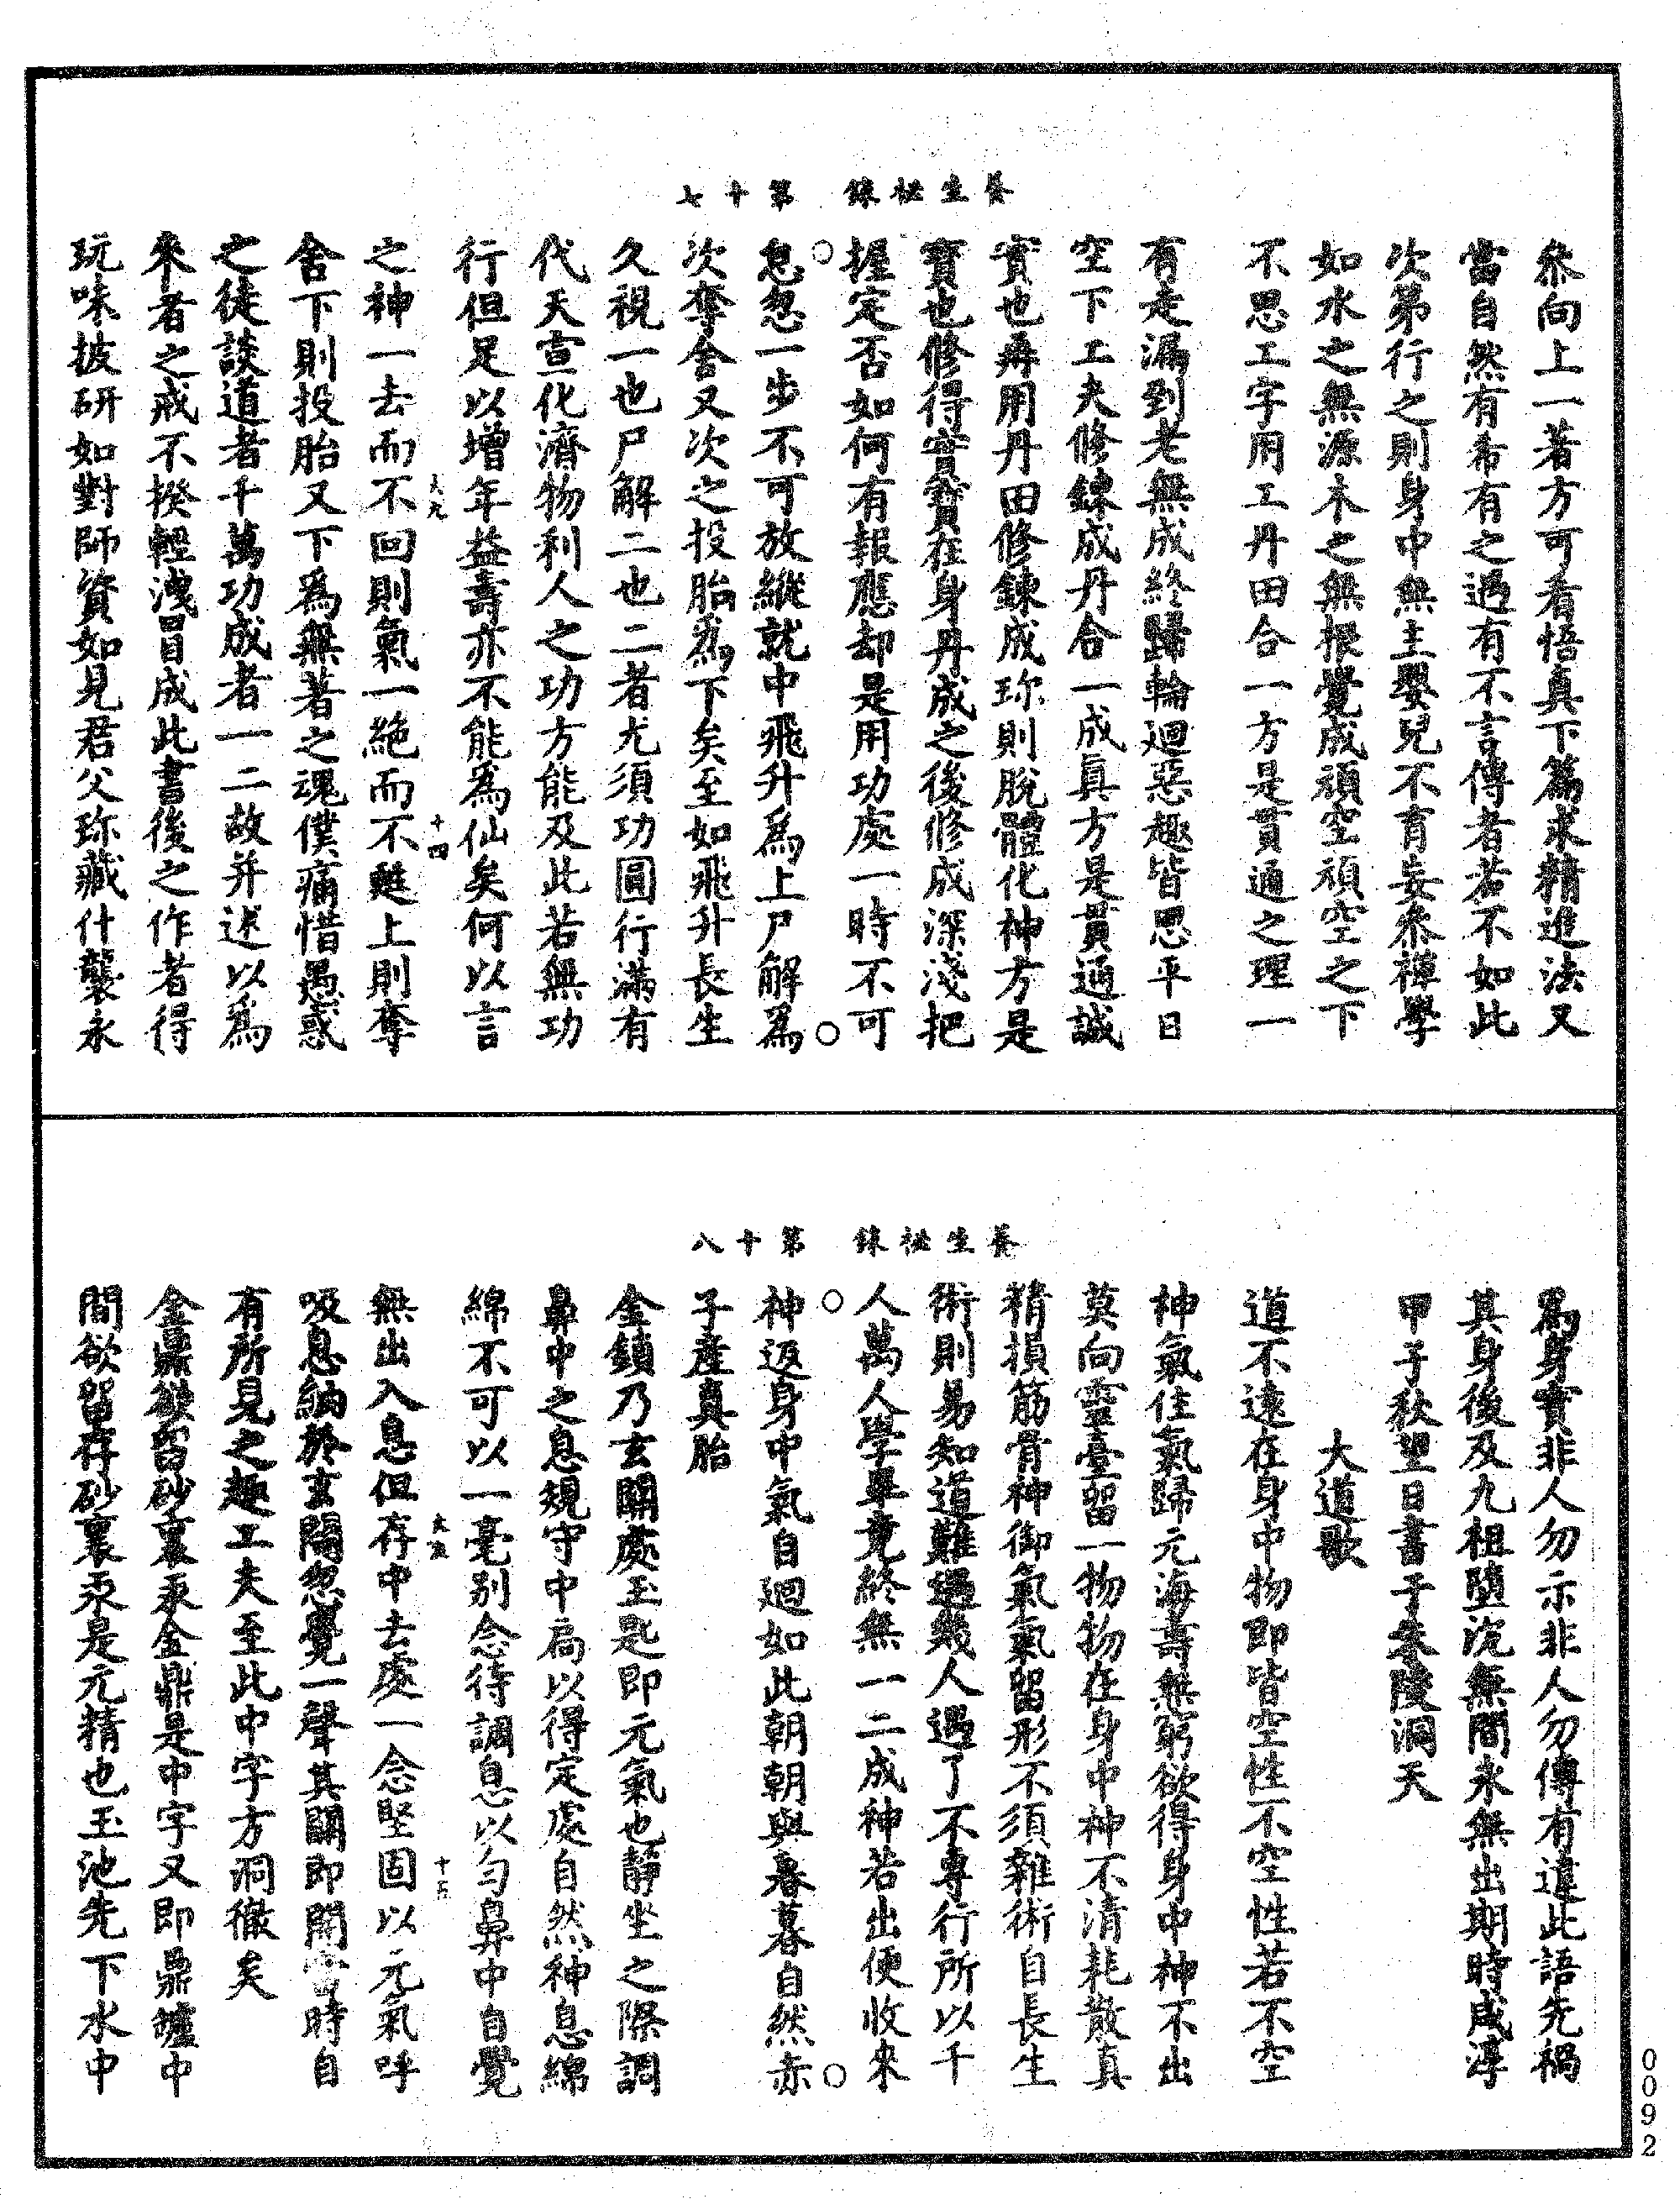 養生祕錄 第十七
叅向上一著方可看悟真下篇求精進法又
當自然有希有之遇有不言傳者若不如此
次第行之則身中無主嬰兒不育妄叅禪學
如水之無源木之無根覺成頑空頑空之下
不思工字用工丹田合一方是貫通之理一
有走漏到老無成終歸輪迴惡趣皆思平日
空下工夫修鍊成丹合一成真方是貫通誠
實也再用丹田修鍊成珎則脫體化神方是
寶也修得實寶在身丹成之後修成深淺把
握定否如何有報應却是用功處一時不可
怠忽一步不可放縱就中飛升爲上尸解爲
次奪舍又次之投胎爲下矣至如飛升長生
久視一也尸解二也二者尤須功圓行滿有
代天宣化濟物利人之功方能及此若無功
行但足以增年益壽亦不能爲仙矣何以言
之神一去而不回則氣一絕而不甦上則奪
舍下則投胎又下爲無著之魂僕痛惜愚惑
之徒談道者千萬功成者一二故并述以爲
來者之戒不揆輕洩冒成此書後之作者得
玩味披研如對師資如見君父珎藏什襲永
養生祕錄 第十八
爲身寳非人勿示非人勿傳有違此語先禍
其身後及九祖墮沉無間永無出期時咸淳
甲子秋望日書于叅陵洞天
大道歌
道不遠在身中物即皆空性不空性若不空
神氣住氣歸元海壽無窮欲得身中神不出
莫向靈臺留一物物在身中神不清耗散真
精損筋骨神御氣氣留形不須雜術自長生
術則易知道難遇幾人遇了不專行所以千
人萬人學畢竟終無一二成神若出便收來
神返身中氣自迴如此朝朝與暮暮自然赤
子產真胎
金鎖乃玄關處玉匙即元氣也靜坐之際調
鼻中之息規守中扃以得定處自然神息綿
綿不可以一毫别念待調息以勻鼻中自覺
無出入息但存中去處一念堅固以元氣呼
吸息納於玄關忽覺一聲其關即開當時自
有所見之趣工夫至此中字方洞徹矣
金鼎欲留砂裏汞金鼎是中字又即鼎爐中
間欲留存砂裏汞是元精也玉池先下水中
0092